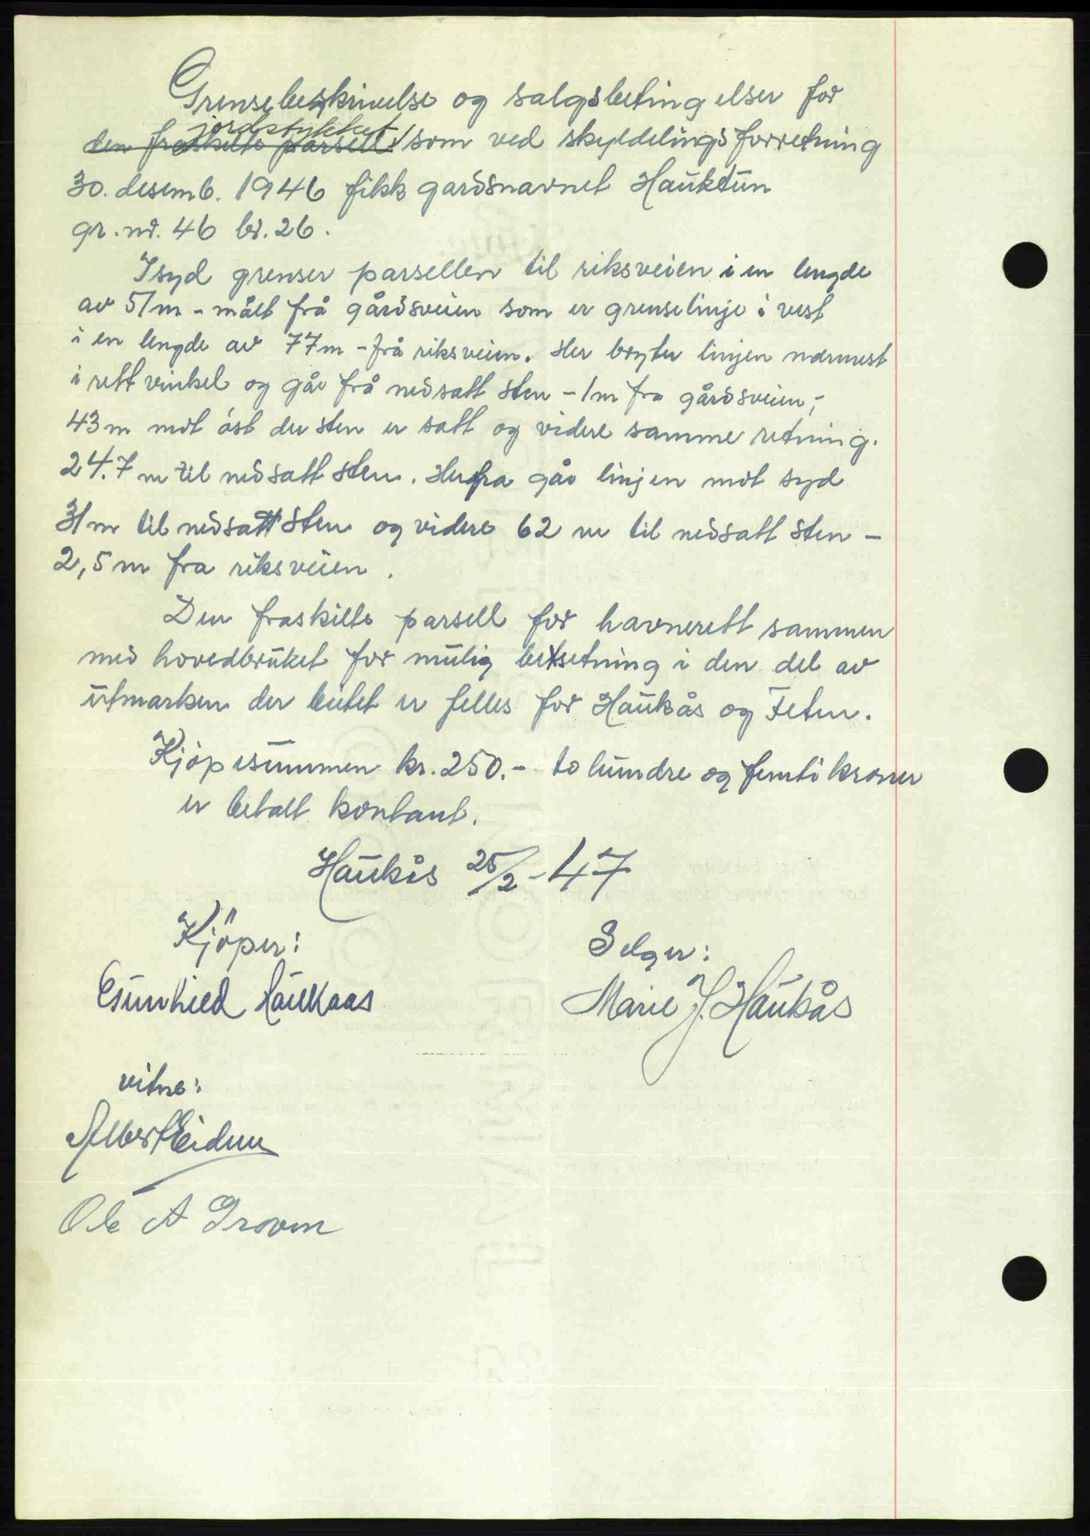 Grensebeskrivelse og salgsbetingelser for
jordstykket
den fraskilte parsell som ved skyldelingsforretning
30. desemb. 1946 fikk gardsnavnet Hauktun
gr. nr. 46 br. 26.
I syd grenser parsellen til riksveien i en lengde
av 51 m - målt frå gårdsveien som er grenselinje i vest
i en lengde av 77 m - frå riksveien. Her bryter linjen nærmest
i rett vinkel og går frå nedsatt sten - 1 m fra gårdsveien,-
43 m mot öst der sten er satt og videre samme retning.
24.7 m til nedsatt sten. Herfra går linjen mot syd
31 m til nedsatt sten og videre 62 m til nedsatt sten -
2,5 m fra riksveien.
Den fraskilte parsell for havnerett sammen
med hovedbruket for mulig besetning i den del av
utmarken der beitet er felles for Haukås og Feten.
Kjöpesummen kr. 250.- to hundre og femti kroner
er betalt kontant.
Haukås 25/2 - 47
Kjöper: Selger:
Haukaas Marie J. Haukås
vitne:
Albert Eidnes
Ole A